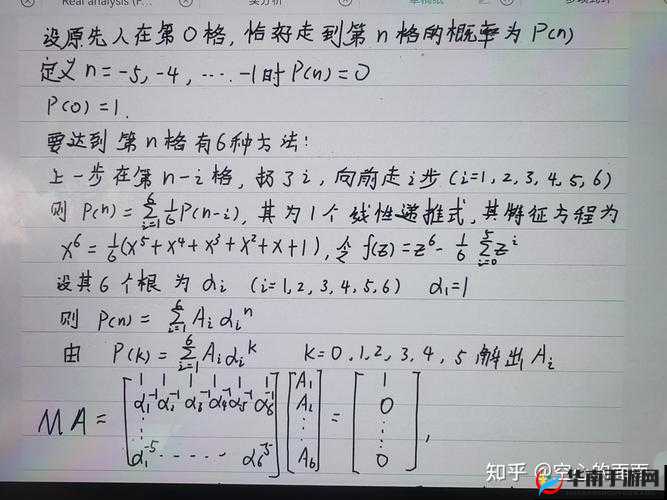 Real analysis (F...
实分析
草稿纸
多项式环
设原先人在第0格, 恰好走到第n格的概率为P(n)
定义 n = -5, -4, ···· -1时 P(n) = 0
P(0) = 1.
要达到第n格有6种方法:
上一步在第n-i格, 扔了i, 向前走i步 (i=1, 2, 3, 4, 5, 6)
则 P(n) = ∑_{i=1}^{6} 1/6 P(n-i), 其为1个线性递推式, 其特征方程为
x⁶ = 1/6 (x⁵ + x⁴ + x³ + x² + x + 1), 令 f(z) = z⁶ - 1/6 ∑_{i=0}^{5} z^i
设其6个根为 αi (i=1, 2, 3, 4, 5, 6) α₁=1
则 P(n) = ∑_{i=1}^{6} Ai αi^n
由 P(k) = ∑_{i=1}^{6} Ai αi^k K=0, 1, 2, 3, 4, 5 解出 Ai
MA = [1 1 1 1 1 1] [A₁] = [1]
[α₁⁻¹ α₂⁻¹ α₃⁻¹ α₄⁻¹ α₅⁻¹ α₆⁻¹] [A₂] [0]
[⋮] [⋮] [⋮]
[α₁⁻⁵ ······ α₆⁻⁵] [A₆] [0] ,
知乎 @空心的面面
华南手游网